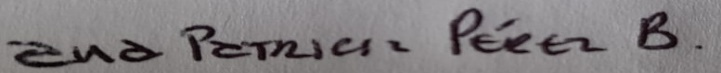 Ana Patricia Pérez B.